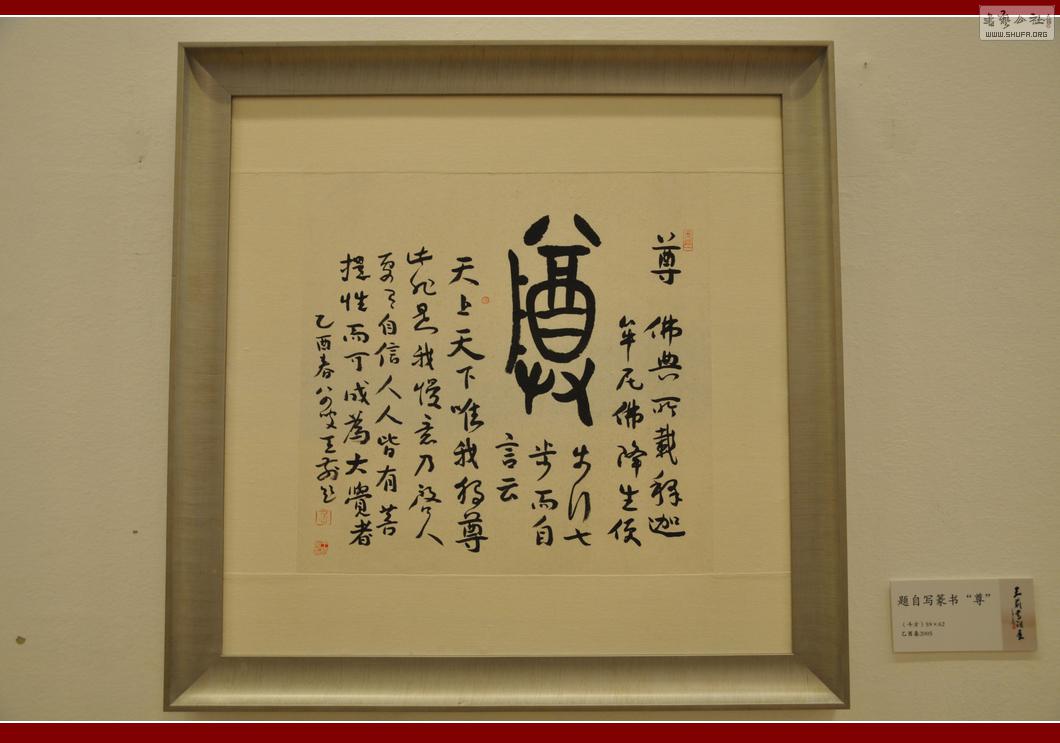 尊
佛典所載釋迦
牟尼佛降生便
尊
步行七
步而自
言云
天上天下唯我獨尊
此非是我慢意乃啓人
自信人人皆有菩
提性而可成為大覺者
乙酉春
题自写篆书“尊”
(斗方)59×62
乙酉春2005
书艺公社
WWW.SHUFA.ORG